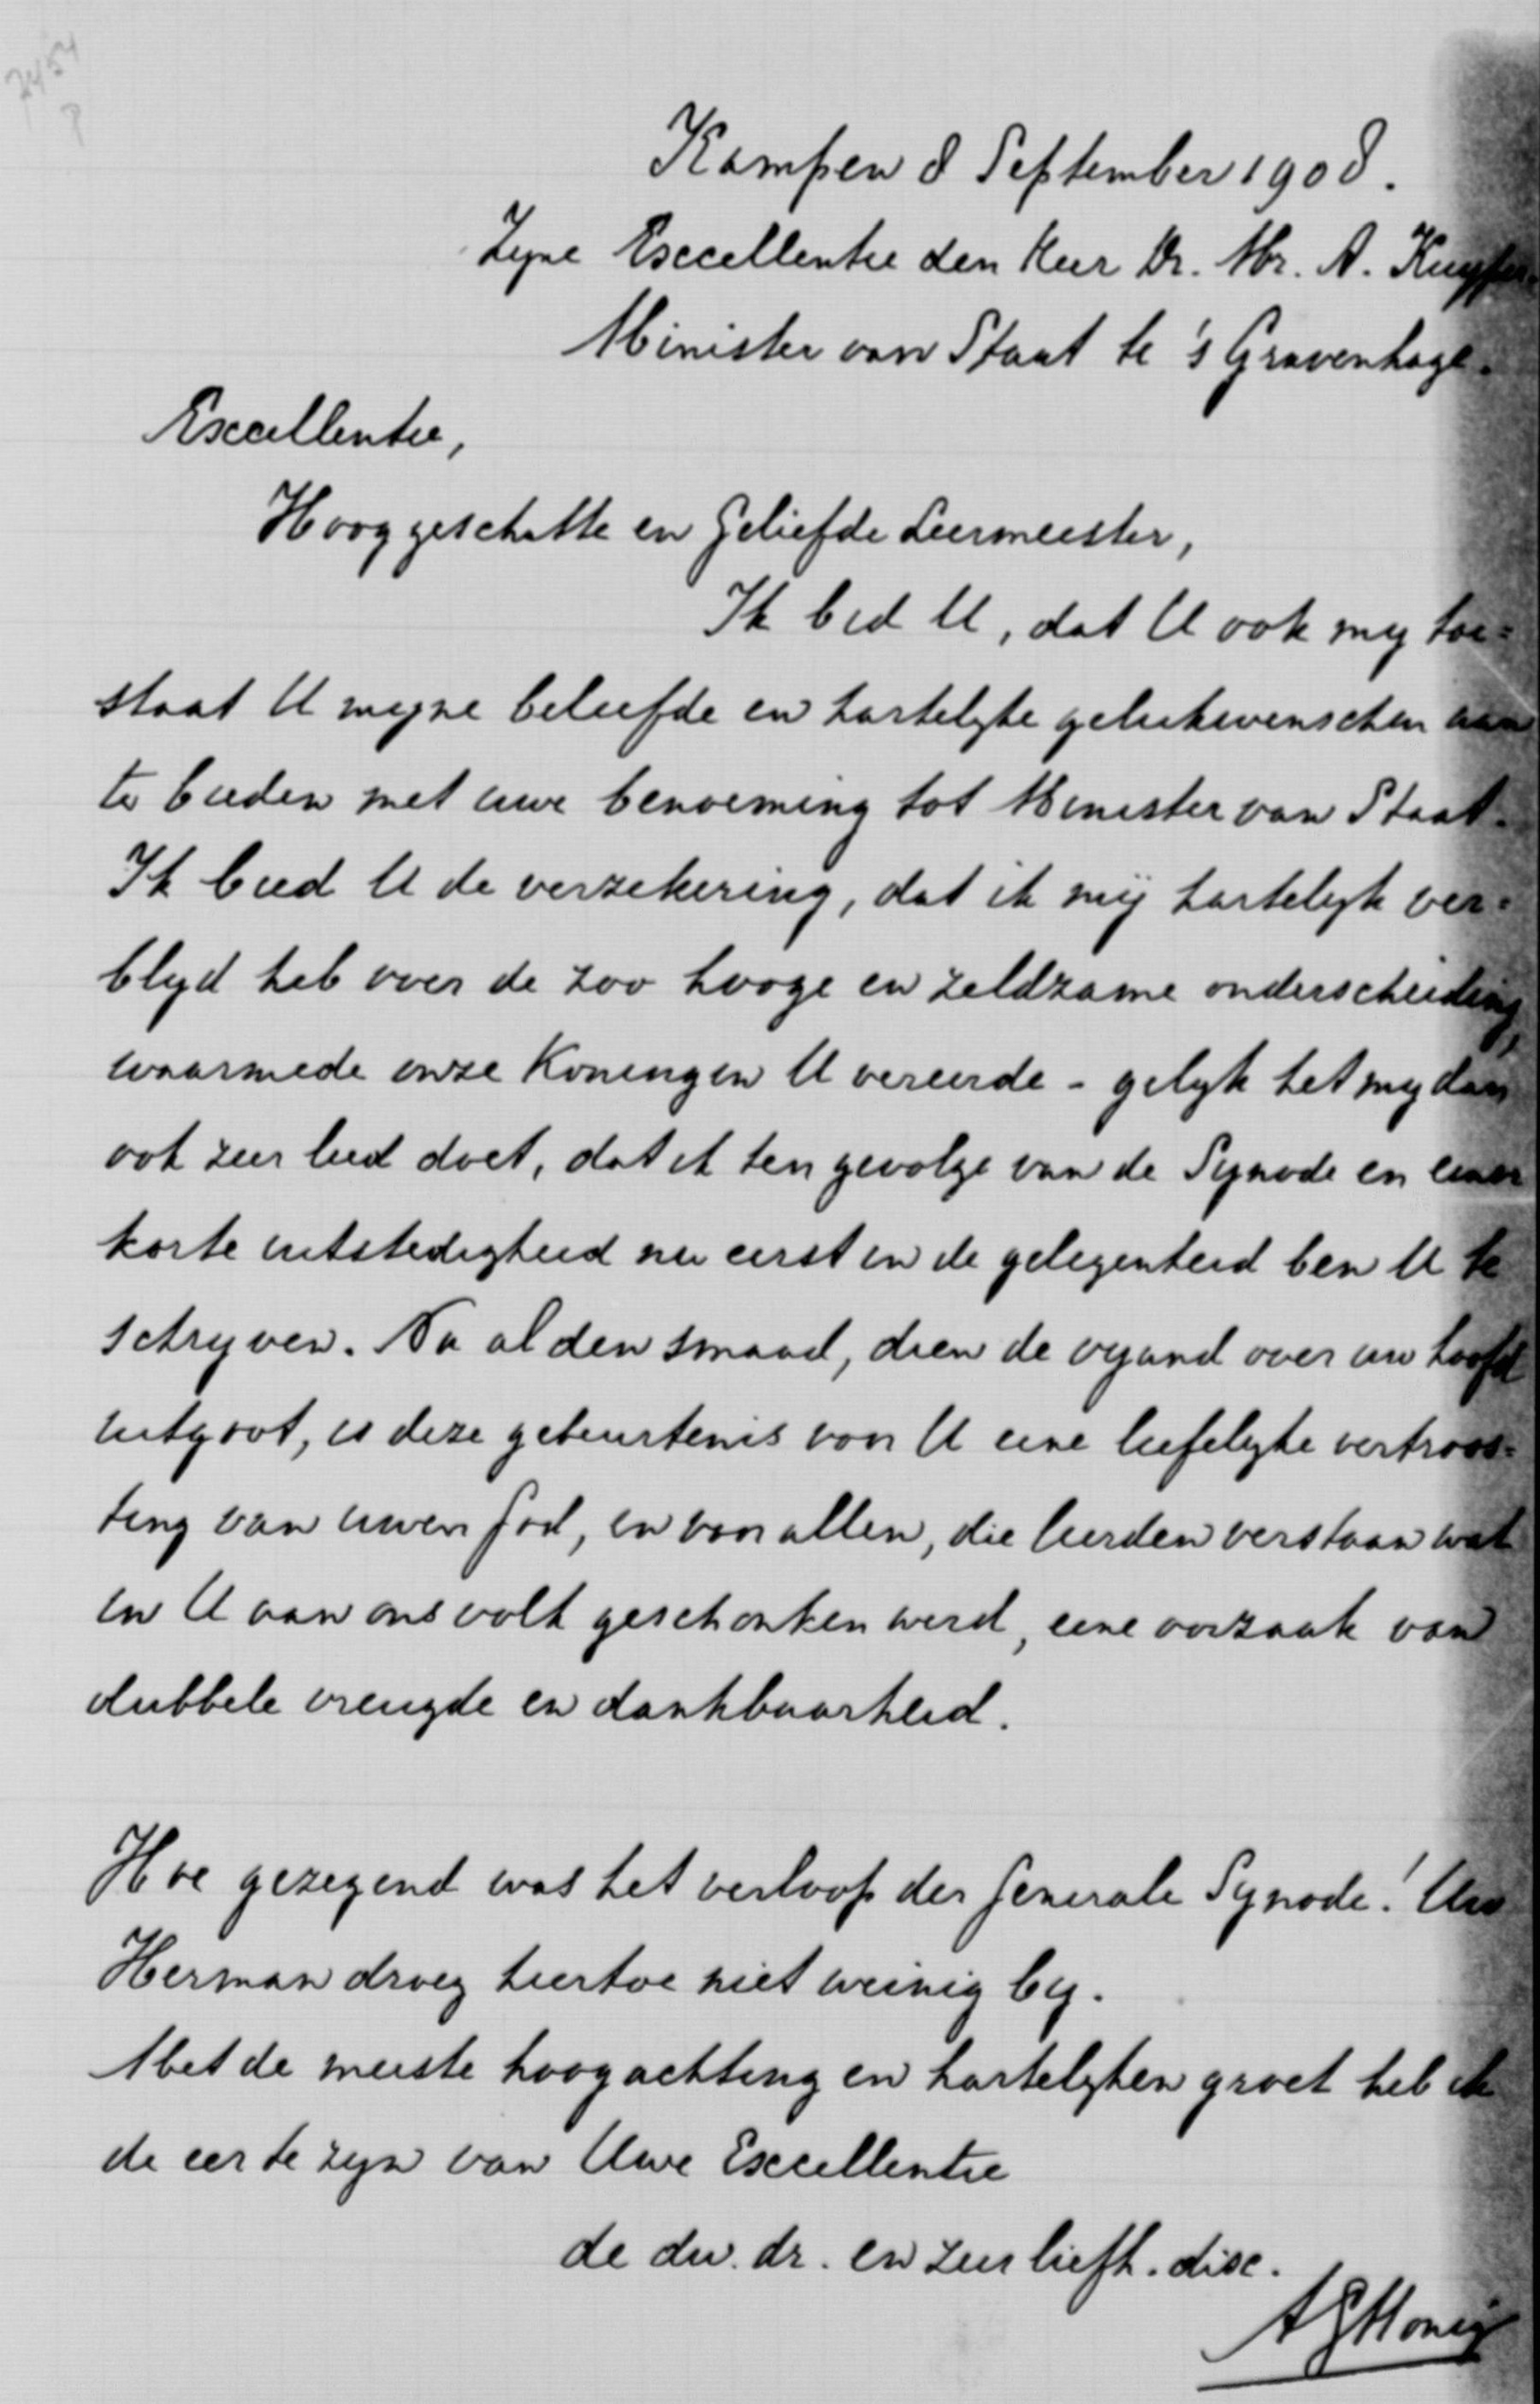 7454
P
Kampen 8 September 1908.
Zyne Excellentie den Heer Dr. Mr. A. Kuyper
Minister van Staat te 's Gravenhage.
Excellentie,
Hooggeschatte en Geliefde Leermeester,
Ik bid U, dat U ook my toe=
staat U myne beleefde en hartelyke gelukwenschen aan
te bieden met uwe benoeming tot Minister van Staat.
Ik bied U de verzekering, dat ik mij hartelyk ver=
blyd heb over de zoo hooge en zeldzame onderscheiding,
waarmede onze Koningin U vereerde - gelyk het my dan
ook zeer leed doet, dat ik ten gevolge van de Synode en eener
korte uitstedigheid nu eerst in de gelegenheid ben U te
schryven. Na al den smaad, dien de vyand over uw hoofd
uitgoot, is deze gebeurtenis voor U eene liefelyke vertroos=
ting van uwen God, en voor allen, die leerden verstaan wat
in U aan ons volk geschonken werd, eene oorzaak van
dubbele vreugde en dankbaarheid.
Hoe gezegend was het verloop der Generale Synode! Uw
Herman droeg hiertoe niet weinig by.
Met de meeste hoogachting en hartelyken groet heb ik
de eer te zyn van Uwe Excellentie
de dw. dr. en zeer liefh. disc.
A G Honig